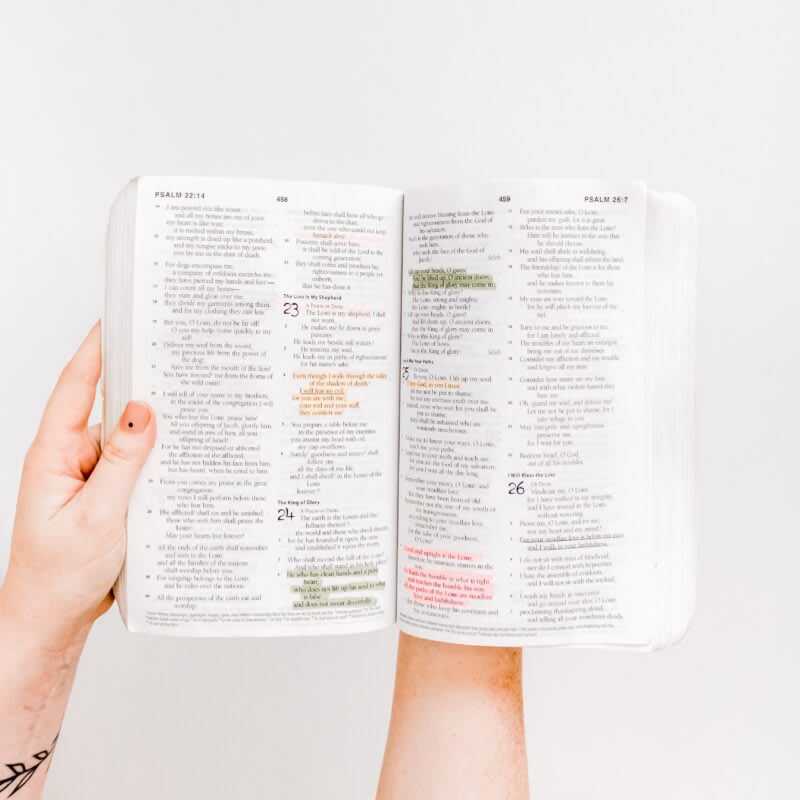 PSALM 22:14
458
14 I am poured out like water,
and all my bones are out of joint;
my heart is like wax;
it is melted within my breast;
15 my strength is dried up like a potsherd,
and my tongue sticks to my jaws;
you lay me in the dust of death.
16 For dogs encompass me;
a company of evildoers encircles me;
they have pierced my hands and feet—
17 I can count all my bones—
they stare and gloat over me;
18 they divide my garments among them,
and for my clothing they cast lots.
19 But you, O LORD, do not be far off!
O you my help, come quickly to my
aid!
20 Deliver my soul from the sword,
my precious life from the power of
the dog!
21 Save me from the mouth of the lion!
You have rescued me from the horns of
the wild oxen!
22 I will tell of your name to my brothers;
in the midst of the congregation I will
praise you:
23 You who fear the LORD, praise him!
All you offspring of Jacob, glorify him,
and stand in awe of him, all you
offspring of Israel!
24 For he has not despised or abhorred
the affliction of the afflicted,
and he has not hidden his face from him,
but has heard, when he cried to him.
25 From you comes my praise in the great
congregation;
my vows I will perform before those
who fear him.
26 The afflicted shall eat and be satisfied;
those who seek him shall praise the
LORD!
May your hearts live forever!
27 All the ends of the earth shall remember
and turn to the LORD,
and all the families of the nations
shall worship before you.
28 For kingship belongs to the LORD,
and he rules over the nations.
29 All the prosperous of the earth eat and
worship;
before him shall bow all who go
down to the dust,
even the one who could not keep
himself alive.
30 Posterity shall serve him;
it shall be told of the Lord to the
coming generation;
31 they shall come and proclaim his
righteousness to a people yet
unborn,
that he has done it.
The LORD Is My Shepherd
23 A PSALM OF DAVID.
The LORD is my shepherd; I shall
not want.
2 He makes me lie down in green
pastures.
He leads me beside still waters.
3 He restores my soul.
He leads me in paths of righteousness
for his name's sake.
4 Even though I walk through the valley
of the shadow of death,
I will fear no evil,
for you are with me;
your rod and your staff,
they comfort me.
5 You prepare a table before me
in the presence of my enemies;
you anoint my head with oil;
my cup overflows.
6 Surely goodness and mercy shall
follow me
all the days of my life,
and I shall dwell in the house of the
LORD
forever.
The King of Glory
24 A PSALM OF DAVID.
The earth is the LORD's and the
fullness thereof,
the world and those who dwell therein,
2 for he has founded it upon the seas
and established it upon the rivers.
3 Who shall ascend the hill of the LORD?
And who shall stand in his holy place?
4 He who has clean hands and a pure
heart,
who does not lift up his soul to what
is false
and does not swear deceitfully.
459
PSALM 26:7
He will receive blessing from the LORD
and righteousness from the God of
his salvation.
Such is the generation of those who
seek him,
who seek the face of the God of
Jacob.
Selah
up your heads, O gates!
And be lifted up, O ancient doors,
that the King of glory may come in.
Who is this King of glory?
The LORD, strong and mighty,
the LORD, mighty in battle!
Lift up your heads, O gates!
And lift them up, O ancient doors,
that the King of glory may come in.
Who is this King of glory?
The LORD of hosts,
he is the King of glory!
Selah
Me Your Paths
25 OF DAVID.
To you, O LORD, I lift up my soul.
O my God, in you I trust;
let me not be put to shame;
let not my enemies exult over me.
Indeed, none who wait for you shall be
put to shame;
they shall be ashamed who are
wantonly treacherous.
Make me to know your ways, O LORD;
teach me your paths.
Lead me in your truth and teach me,
for you are the God of my salvation;
for you I wait all the day long.
Remember your mercy, O LORD, and
your steadfast love,
for they have been from of old.
Remember not the sins of my youth or
my transgressions;
according to your steadfast love
remember me,
for the sake of your goodness,
O LORD!
Good and upright is the LORD;
therefore he instructs sinners in the
way.
He leads the humble in what is right,
and teaches the humble his way.
All the paths of the LORD are steadfast
love and faithfulness,
for those who keep his covenant and
his testimonies.
11 For your name's sake, O LORD,
pardon my guilt, for it is great.
12 Who is the man who fears the LORD?
Him will he instruct in the way that
he should choose.
13 His soul shall abide in well-being,
and his offspring shall inherit the land.
14 The friendship of the LORD is for those
who fear him,
and he makes known to them his
covenant.
15 My eyes are ever toward the LORD,
for he will pluck my feet out of the
net.
16 Turn to me and be gracious to me,
for I am lonely and afflicted.
17 The troubles of my heart are enlarged;
bring me out of my distresses.
18 Consider my affliction and my trouble,
and forgive all my sins.
19 Consider how many are my foes,
and with what violent hatred they
hate me.
20 Oh, guard my soul, and deliver me!
Let me not be put to shame, for I
take refuge in you.
21 May integrity and uprightness
preserve me,
for I wait for you.
22 Redeem Israel, O God,
out of all his troubles.
I Will Bless the LORD
26 OF DAVID.
Vindicate me, O LORD,
for I have walked in my integrity,
and I have trusted in the LORD
without wavering.
2 Prove me, O LORD, and try me;
test my heart and my mind.
3 For your steadfast love is before my eyes,
and I walk in your faithfulness.
4 I do not sit with men of falsehood,
nor do I consort with hypocrites.
5 I hate the assembly of evildoers,
and I will not sit with the wicked.
6 I wash my hands in innocence
and go around your altar, O LORD,
7 proclaiming thanksgiving aloud,
and telling all your wondrous deeds.